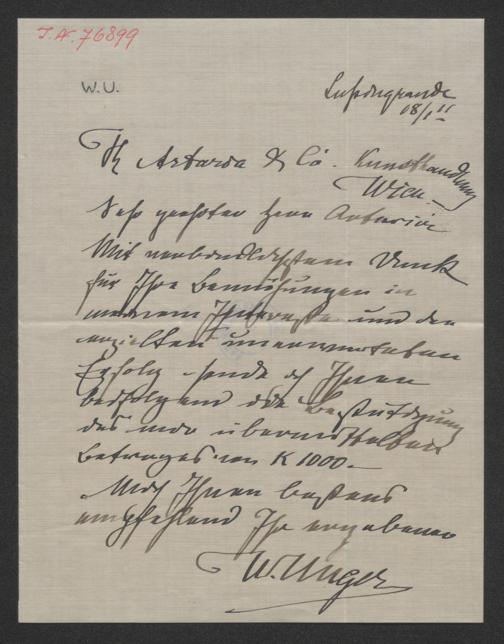 J.N. 76899
W.U.
Lussingrande
18/1 11
Artaria & Co. Kunsthandlung
Wien
Sehr geehrter Herr Artaria
Mit verbindlichstem Dank
für Ihre Bemühungen in
meinem Interesse und den
erzielten unerwarteten
Erfolg sende ich Ihnen
beifolgend die Bestätigung
des mir übermittelten
Betrages von K 1000.—
Mich Ihnen bestens
empfehlend Ihr ergebener
W. Unger